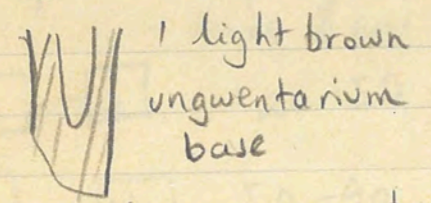 1 light brown
ungwentarium
base